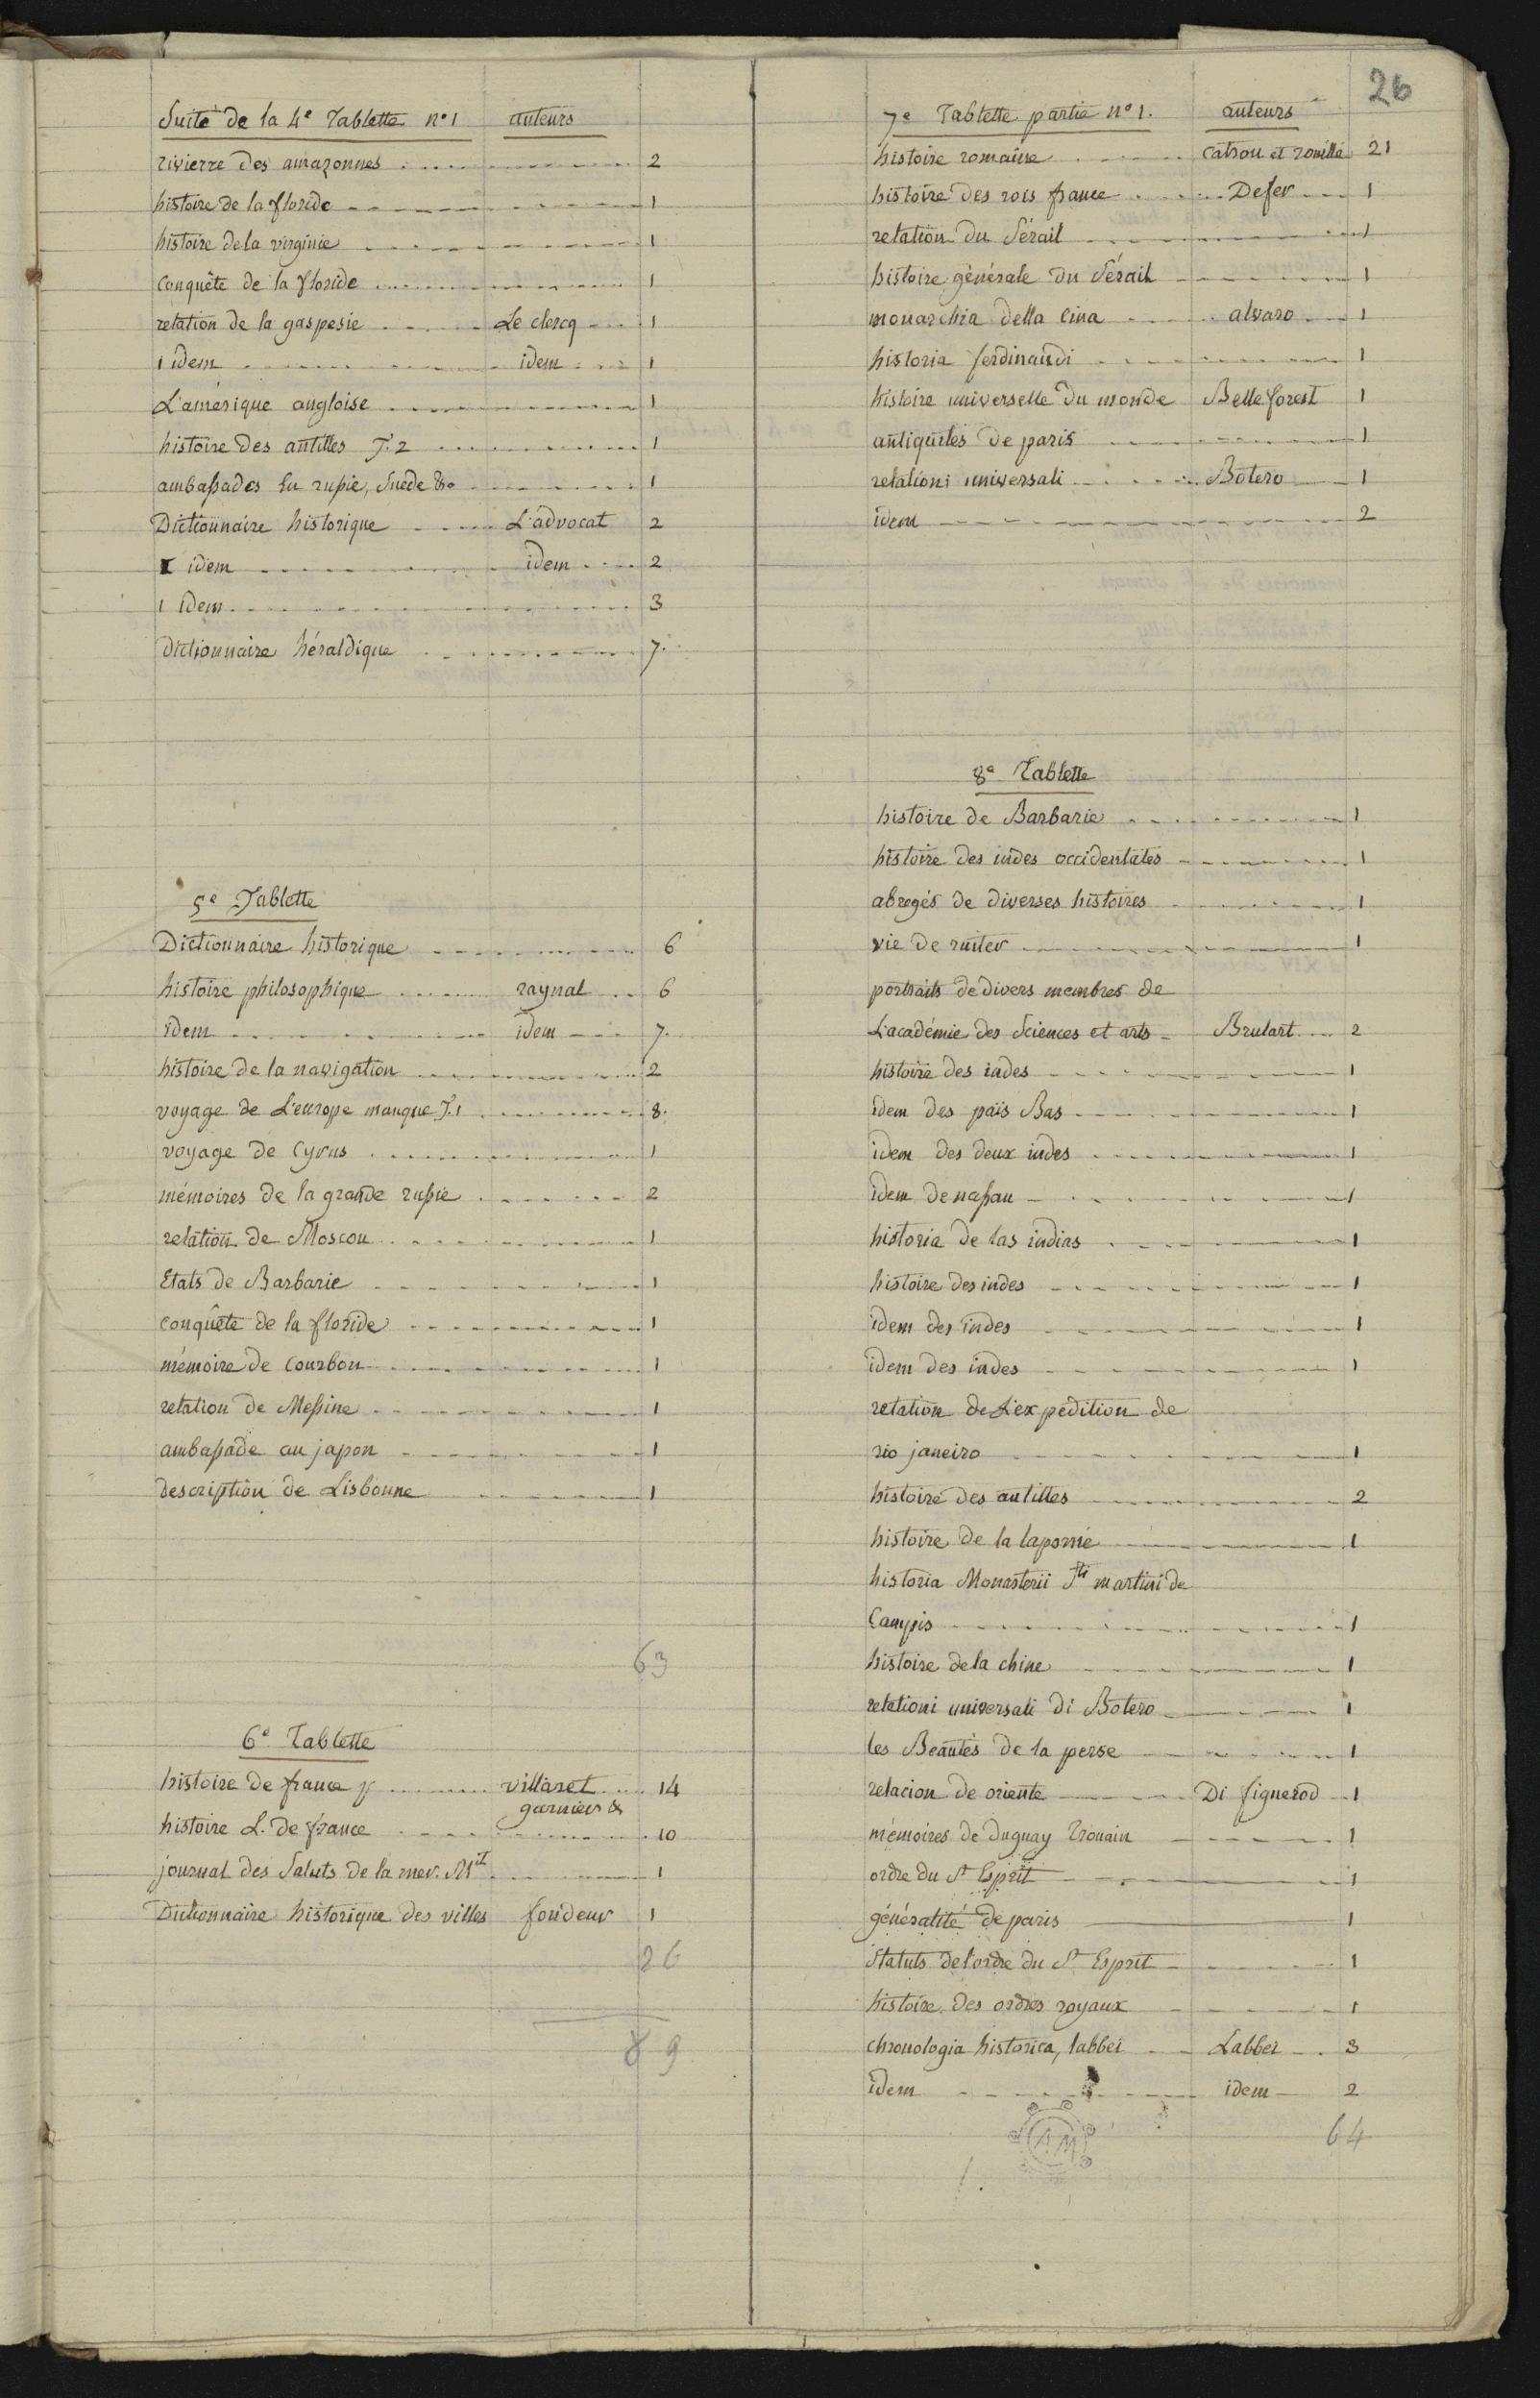 26
Suite de la 4e Tablette n°1 auteurs
rivierre des amazonnes 2
histoire de la floride 1
histoire de la virginie 1
Conquête de la floride 1
relation de la gaspesie Le clercq 1
1 idem idem 1
L'amérique angloise 1
histoire des antilles T. 2 1
ambaßades En rußie, Suède &a 1
Dictionnaire historique L'advocat 2
1 idem idem 2
1 idem 3
Dictionnaire héraldique 7.
5e Tablette
Dictionnaire historique 6
histoire philosophique raynal 6
idem idem 7.
histoire de la navigation 2
voyage de L'europe manque T.1 8.
voyage de Cyrus 1
mémoires de la grande rußie 2
relation de Moscou 1
Etats de Barbarie 1
conquête de la floride 1
mémoire de Courbon 1
relation de Meßine 1
ambaßade au japon 1
description de Lisbonne 1
63
6e Tablette
histoire de france villaret 14
garnier &
histoire L. de france 10
journal des Saluts de la mer. Mit 1
Dictionnaire historique des villes 1
26
89
7e Tablette partie n°1. auteurs
histoire romaine Catrou et rouillé 21
histoire des rois france Defer 1
relation du Sérail 1
histoire générale du Sérail 1
monarchia della Cina alvaro 1
historia ferdinandi 1
histoire universelle du monde Belleforest 1
antiquités de paris 1
relationi universali Botero 1
idem 2
8e Tablette
histoire de Barbarie 1
histoire des indes occidentales 1
abregés de diverses histoires 1
vie de ruiter 1
portraits de divers membres de
L'académie des Sciences et arts Brulart 2
histoire des indes 1
idem des païs Bas 1
idem des deux indes 1
idem de naßau 1
historia de las indias 1
histoire des indes 1
idem des indes 1
idem des indes 1
relation de L'expédition de
rio janeiro 1
histoire des antilles 2
histoire de la laponie 1
historia Monasterii Sti martini de
Campis 1
histoire de la chine 1
relationi universali di Botero 1
les Beautés de la perse 1
relacion de oriente Di figuerod 1
mémoires de duguay Trouain 1
ordre du St Esprit 1
généralité de paris 1
Statuts de l'ordre du St Esprit 1
histoire des ordres royaux 1
chronologia historica, labbei Labbei 3
idem idem 2
64